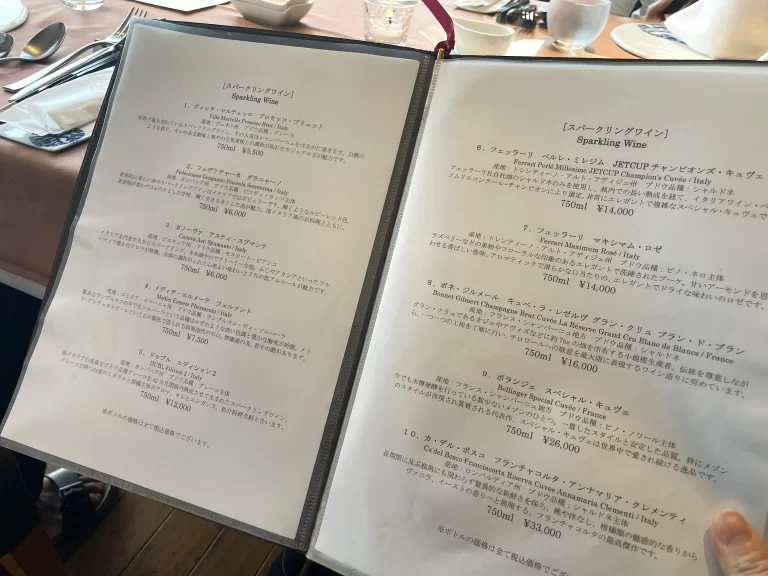 [スパークリングワイン]
Sparkling Wine
1．ヴィッラ・マルチェッロ プロセッコ・ブリュット
Villa Marcello Prosecco Brut / Italy
産地：ヴェネト州 ブドウ品種：グレーラ
750ml ¥5,500
2．フェデリチャーネ グラニャーノ
Federiciane Gragnano Penisola Sorrentina / Italy
産地：カンパニア州 ブドウ品種：ピエディ・ロッソ主体
750ml ¥6,000
3．カノーヴァ アスティ・スプマンテ
Canova Asti Spumante / Italy
産地：ピエモンテ州 ブドウ品種：モスカート・ビアンコ
750ml ¥6,000
4．メディチ・エルメーテ フェルメント
Medici Ermete Phermento / Italy
産地：エミリア・ロマーニャ州 ブドウ品種：ランブルスコ・ディ・ソルバーラ
750ml ¥7,500
5．ドゥブル エディション2
DUBL Edition 2 / Italy
産地：カンパニア州 ブドウ品種：グレーコ主体
750ml ¥12,000
※ボトルの価格は全て税込価格でございます。
[スパークリングワイン]
Sparkling Wine
6．フェッラーリ ペルレ・ミレジム JETCUP チャンピオンズ・キュヴェ
Ferrari Perlé Millesime JETCUP Champion's Cuvée / Italy
産地：トレンティーノ・アルト・アディジェ州 ブドウ品種：シャルドネ
フェッラーリ社自社畑のシャルドネのみを使用し、瓶内での長い熟成を経て、イタリアワイン・ベ
ソムリエコンクール・チャンピオンにより選定。非常にエレガントで複雑なスペシャル・キュヴェで
750ml ¥14,000
7．フェッラーリ マキシマム・ロゼ
Ferrari Maximum Rosé / Italy
産地：トレンティーノ・アルト・アディジェ州 ブドウ品種：ピノ・ネロ主体
ラズベリーなどの果物やフローラルな印象のあるエレガントで洗練されたブーケ。甘いアーモンドを思
わせる香ばしい後味。アロマティックで滑らかな口当たりの、エレガントでドライな味わいのロゼです。
750ml ¥14,000
8．ボネ・ジルメール キュベ・ラ・レゼルヴ グラン・クリュ ブラン・ド・ブラン
Bonnet Gilmert Champagne Brut Cuvée La Réserve Grand Cru Blanc de Blancs / France
産地：フランス・シャンパーニュ地方 ブドウ品種：シャルドネ
グラン・クリュであるオジェやアヴィズなどに約7haの畑を所有する小規模生産者。伝統を尊重しなが
ら、一つ一つの工程を丁寧に行い、テロワールへの敬意を最大限に表現するワイン造りに努めています。
750ml ¥16,000
9．ボランジェ スペシャル・キュヴェ
Bollinger Special Cuvée / France
産地：フランス・シャンパーニュ地方 ブドウ品種：ピノ・ノワール主体
今でも木樽発酵を行う数少ないメゾンのひとつ。一貫したスタイルと安定した品質、特にメゾン
のスタイルが体現され賞賛される代表作。スペシャル・キュヴェは世界中で愛され続ける逸品です。
750ml ¥26,000
10．カ・デル・ボスコ フランチャコルタ・アンナマリア・クレメンティ
Ca'del Bosco Franciacorta Riserva Cuvee Annamaria Clementi / Italy
産地：ロンバルディア州 ブドウ品種：シャルドネ主体
長期間に及ぶ瓶熟にも関わらず驚異的な新鮮さを保ち、桃や洋なし、柑橘類の魅惑的な香りから
ヴァニラ、イーストの香りへと展開する、フランチャコルタの最高傑作です。
750ml ¥33,000
※ボトルの価格は全て税込価格でござい